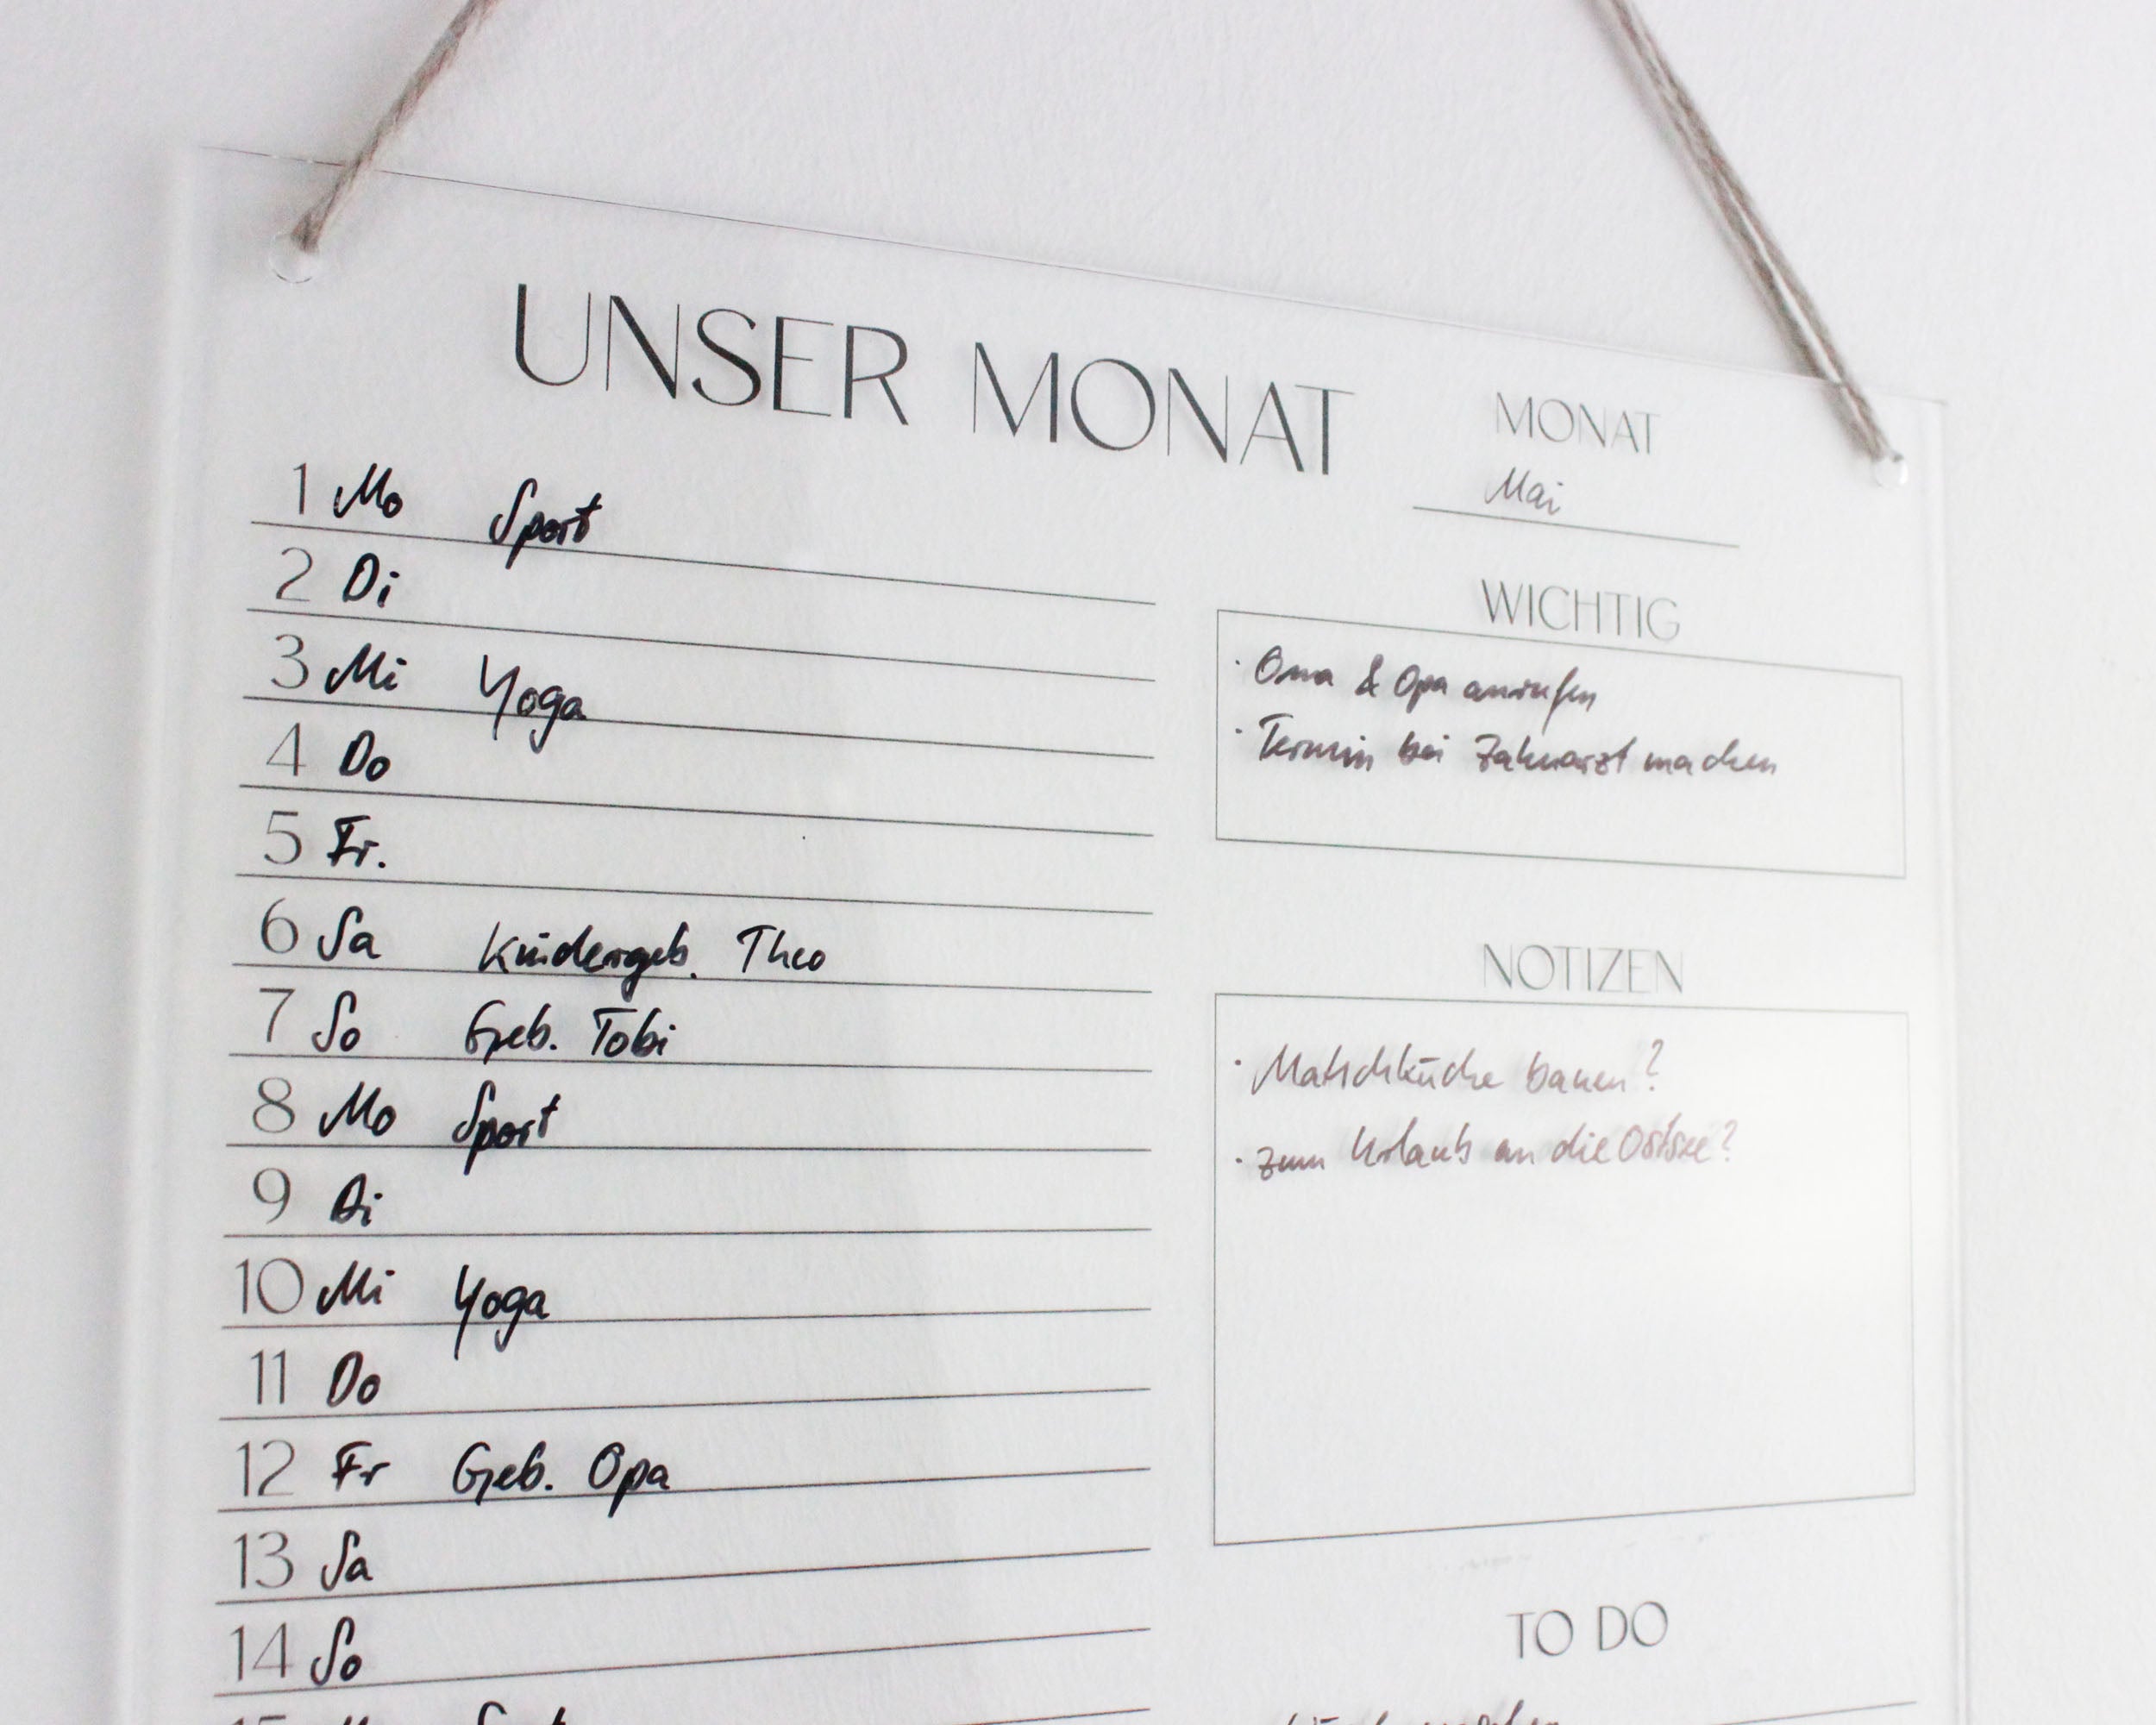 UNSER MONAT
MONAT
Mai
1 Mo Sport
2 Di
3 Mi Yoga
4 Do
5 Fr.
6 Sa Kindergeb. Theo
7 So Geb. Tobi
8 Mo Sport
9 Di
10 Mi Yoga
11 Do
12 Fr Geb. Opa
13 Sa
14 So
WICHTIG
· Oma & Opa anrufen
· Termin bei Zahnarzt machen
NOTIZEN
· Matschküche bauen?
· zum Urlaub an die Ostsee?
TO DO